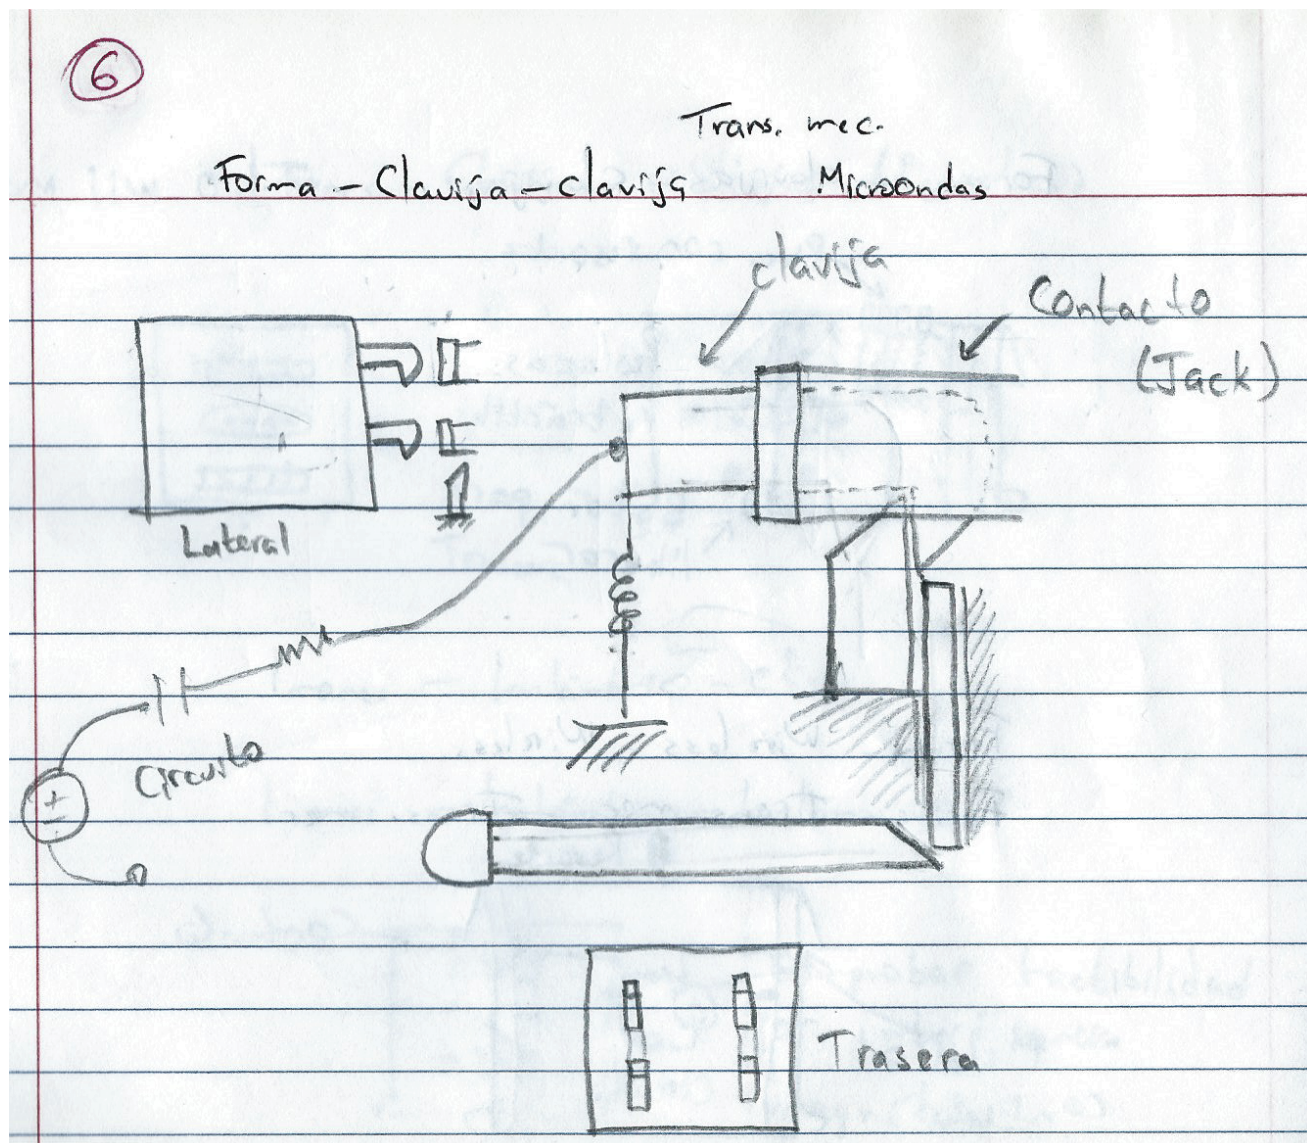 6
Trans. mec.
Forma - Clavija - clavija Microondas
clavija
Contacto
(Jack)
Lateral
Circuito
+
Trasera